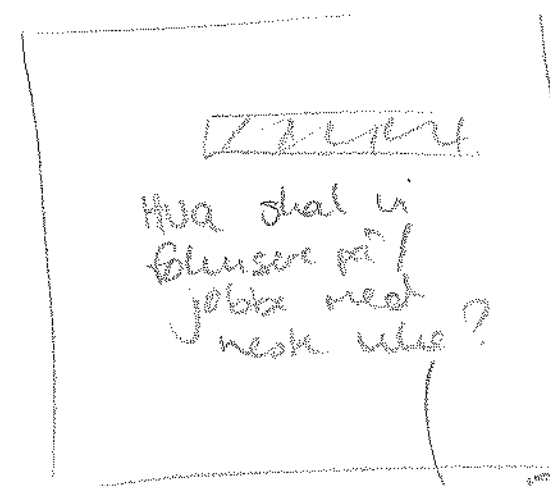 Hva skal vi
fokusere på /
jobbe med
neste uke?